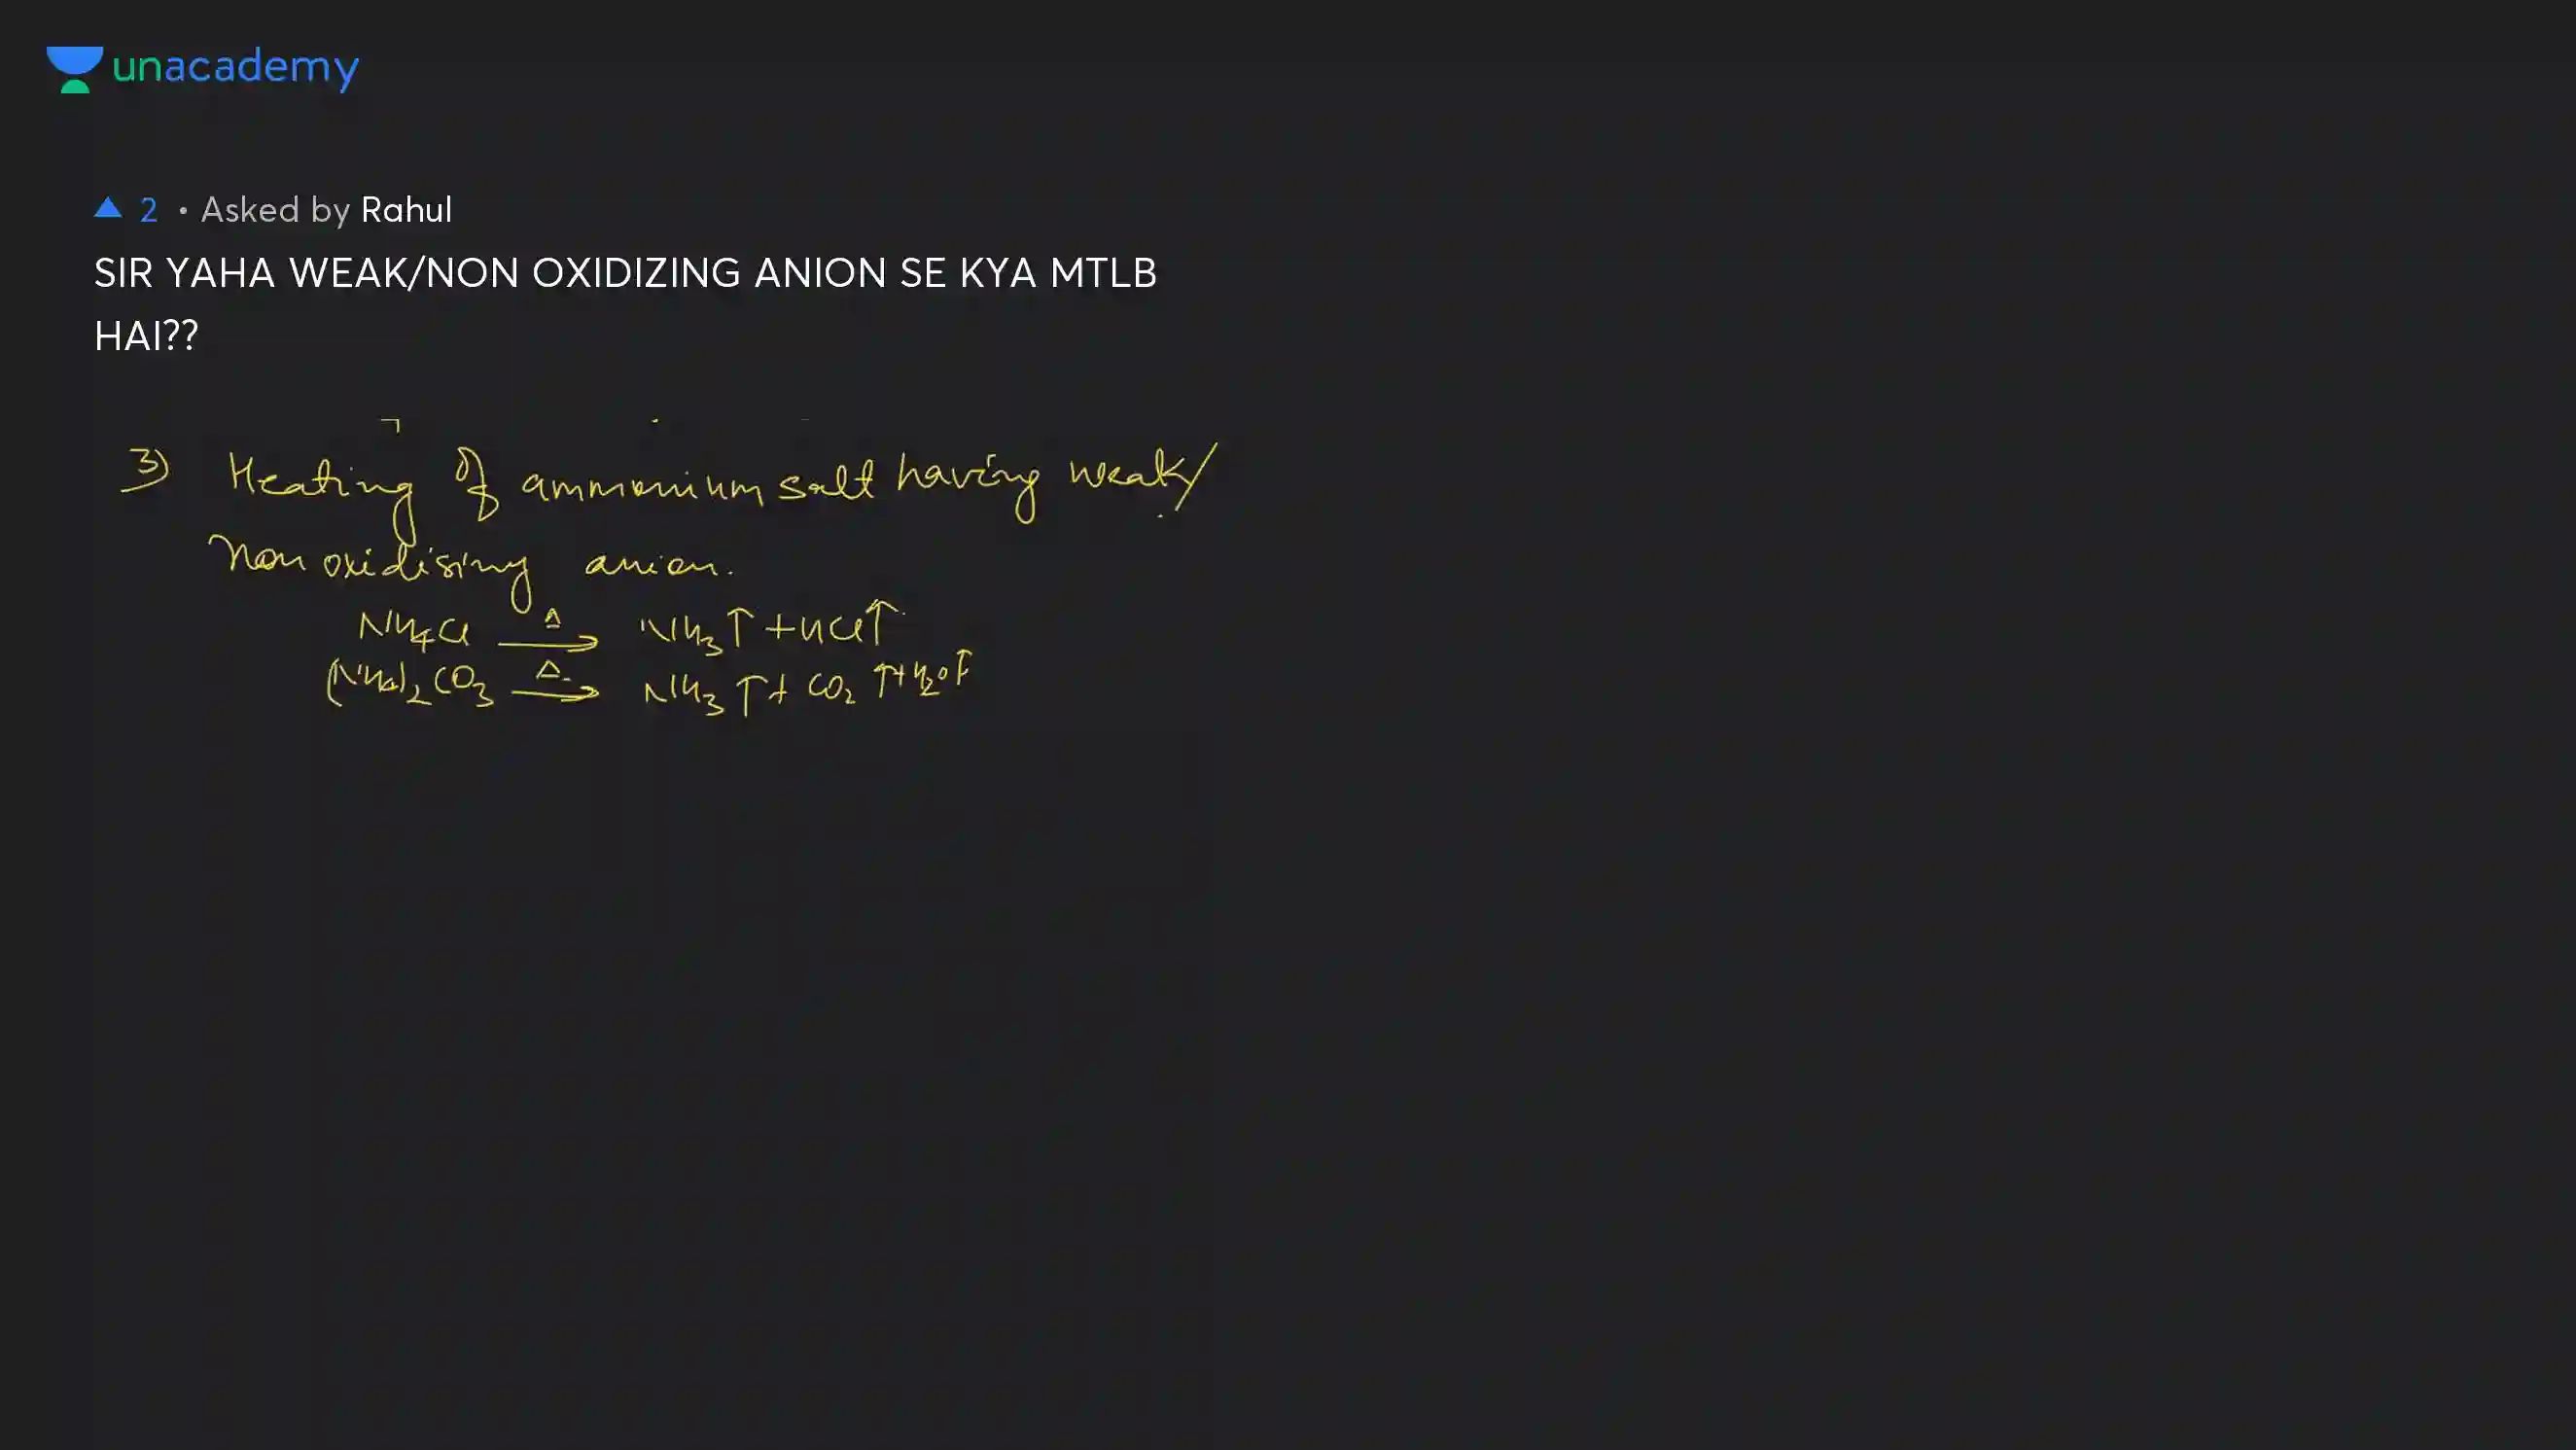 unacademy
2 • Asked by Rahul
SIR YAHA WEAK/NON OXIDIZING ANION SE KYA MTLB
HAI??
3) Heating of ammonium salt having weak/
Non oxidising anion.
NH4Cl Δ→ NH3↑ + HCl↑
(NH4)2CO3 Δ→ NH3↑ + CO2↑ + H2O↑